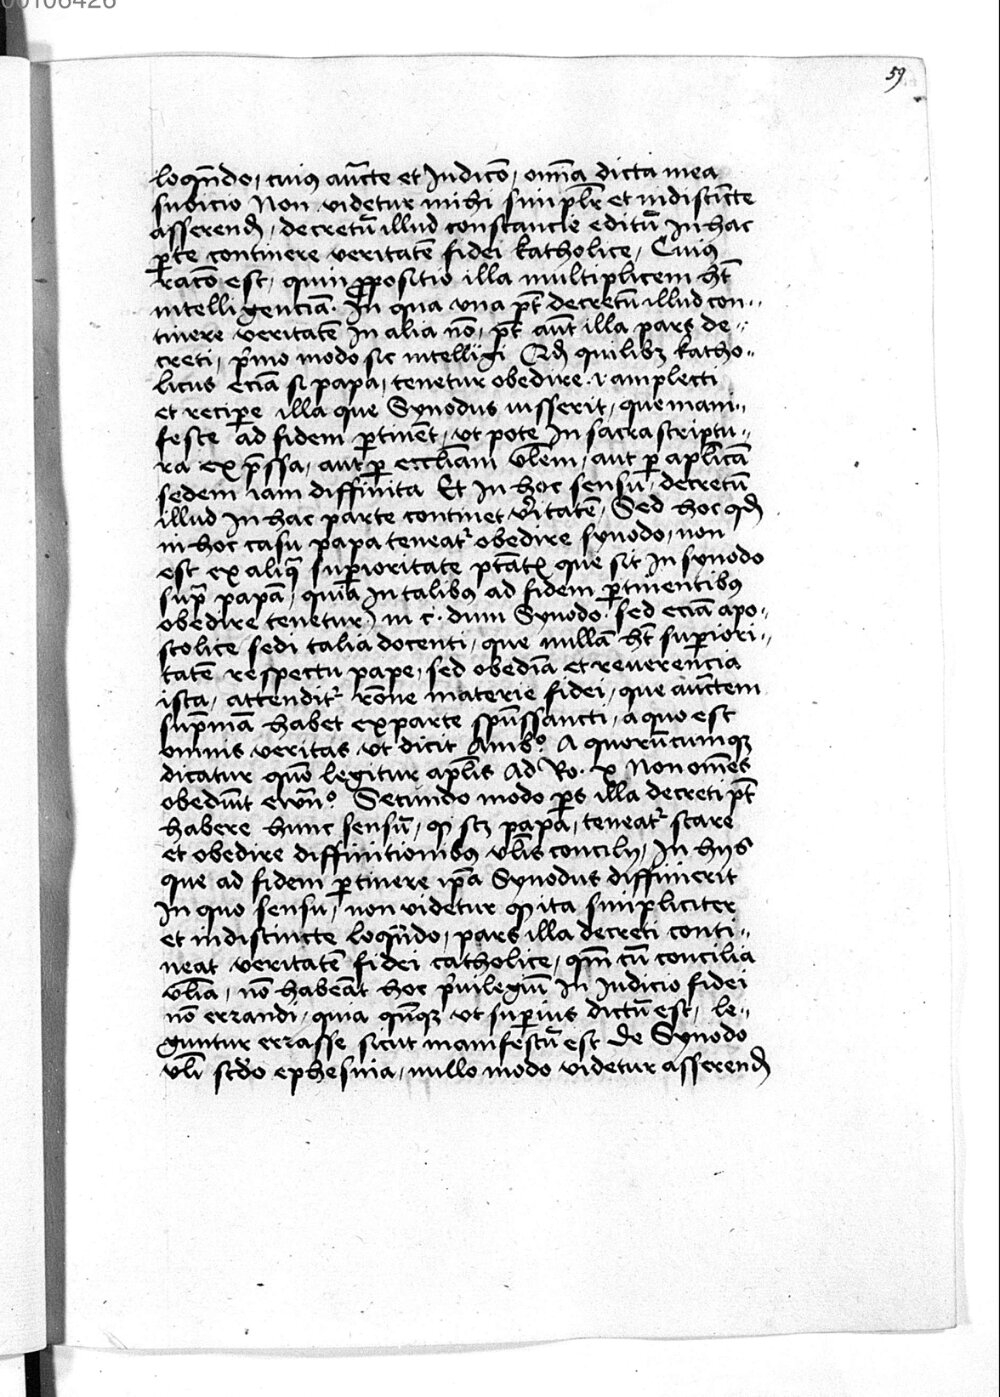 00106426
59
loquēdo, cuius auc̄te et Iudico, om̄ia dicta mea
subicio Non videtur mihi simplr̄ et indistincte
asserend̄, decretū illud constancie editū In hac
ꝑte continere veritatē fidei katholice, Cuius
rac̄o est, quia ꝓpositio illa multiplicem hꝫ̄t
intelligenciā. In qua vna pt̄ decretū illud con-
tinere veritatē In alia nō, pt̄ aūt illa pars de-
creti, pͥmo modo sic intelligi Qd̄ quilibꝫ katho-
licus eciā si papa, tenetur obedire ⁊ amplecti
et reciꝑe illa que Synodus iusserit, que mani-
feste ad fidem ꝑtinēt, vt pote In sacra scriptu-
ra exp̄ssa, aut ꝑ eccliam vl̄em, aut ꝑ aplicā
sedem iam diffinita Et In hoc sensu, decretū
illud In hac parte continet v̄itatē, Sed hoc qd̄
in hoc casu papa teneatᷣ obedire synodo, non
est ex aliq̄ suꝑioritate ptāt̄ que sit In synodo
supͣ papā, quia In talibus ad fidem ꝑtinentibus
obedire tenetur, in c. dum Synodo. sed eciā apo-
stolice sedi talia docenti, que nullā hꝫ̄t suꝑiori-
tatē respectu pape, sed obediā et reuerencia
ista, attenditᷣ rōne materie fidei, que auctem
sup̄mā habet ex parte spūssancti, a quo est
omnis veritas vt dicit Amb̊. A quorūcumqꝫ
dicatur quō legitur aplīs Ad Ro. x Non om̄es
obediūt ewan̊. Secundo modo ꝑs illa decreti pt̄
habere hunc sensū, ꝙ scꝫ papa, teneatᷣ stare
et obedire diffinitionibus vl̄is concilij, In hijs
que ad fidem ꝑtinere ip̄a Synodus diffinierit
In quo sensu, non videtur ꝙ ita simpliciter
et indistincte loquēdo, pars illa decreti conti-
neat veritatē fidei catholice, qm̄ cū concilia
vl̄ia, nō habeāt hoc pͥuilegiū In Iudicio fidei
nō errandi, quia qn̄qꝫ vt suꝑius dictū est, le-
guntur errasse sicut manifestū est de Synodo
vl̄i scd̄o ephesina, nullo modo videtur asserend̄